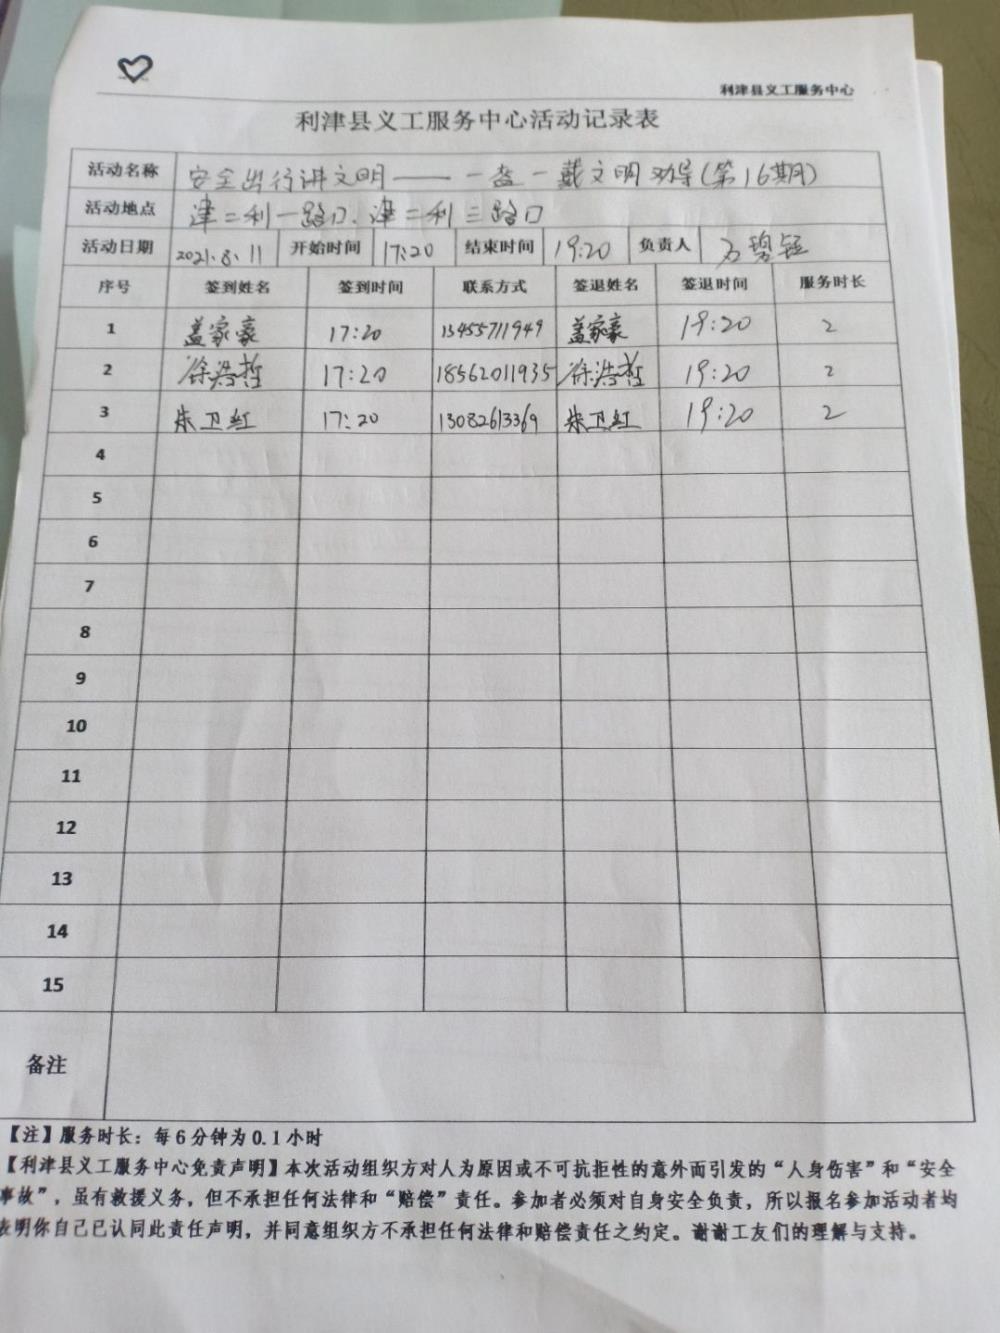 利津县义工服务中心
利津县义工服务中心活动记录表
活动名称 安全出行讲文明——一盔一戴文明劝导(第16期)
活动地点 津二利一路口、津二利三路口
活动日期 2021.8.11 开始时间 17:20 结束时间 19:20 负责人
序号 签到姓名 签到时间 联系方式 签退姓名 签退时间 服务时长
1 盖家豪 17:20 13455711949 盖家豪 19:20 2
2 徐浩哲 17:20 18562011935 徐浩哲 19:20 2
3 朱卫红 17:20 13082613369 朱卫红 19:20 2
4
5
6
7
8
9
10
11
12
13
14
15
备注
【注】服务时长：每6分钟为0.1小时
【利津县义工服务中心免责声明】本次活动组织方对人为原因或不可抗拒性的意外而引发的“人身伤害”和“安全
事故”，虽有救援义务，但不承担任何法律和“赔偿”责任。参加者必须对自身安全负责，所以报名参加活动者均
表明你自己已认同此责任声明，并同意组织方不承担任何法律和赔偿责任之约定。谢谢工友们的理解与支持。